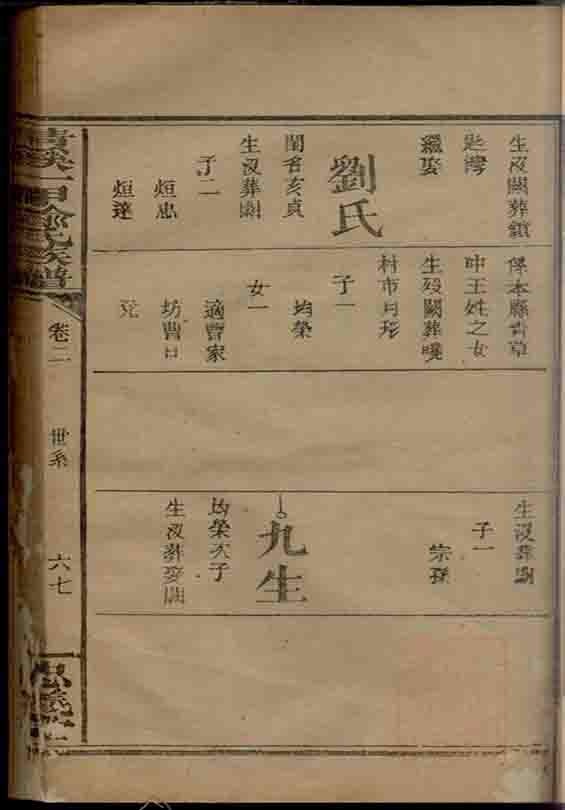 生沒闕葬鎮
匙灣
繼娶
劉氏
閨名亥貞
生沒葬闕
子二
烜忠
烜達
係本縣青草
冲王姓之女
生歿闕葬曉
村市月形
子一
均榮
女一
適曹家
坊曹口
兒
生沒葬闕
子一
宗孫
九生
均榮次子
生沒葬娶闕
氏族譜
卷二
世系
六七